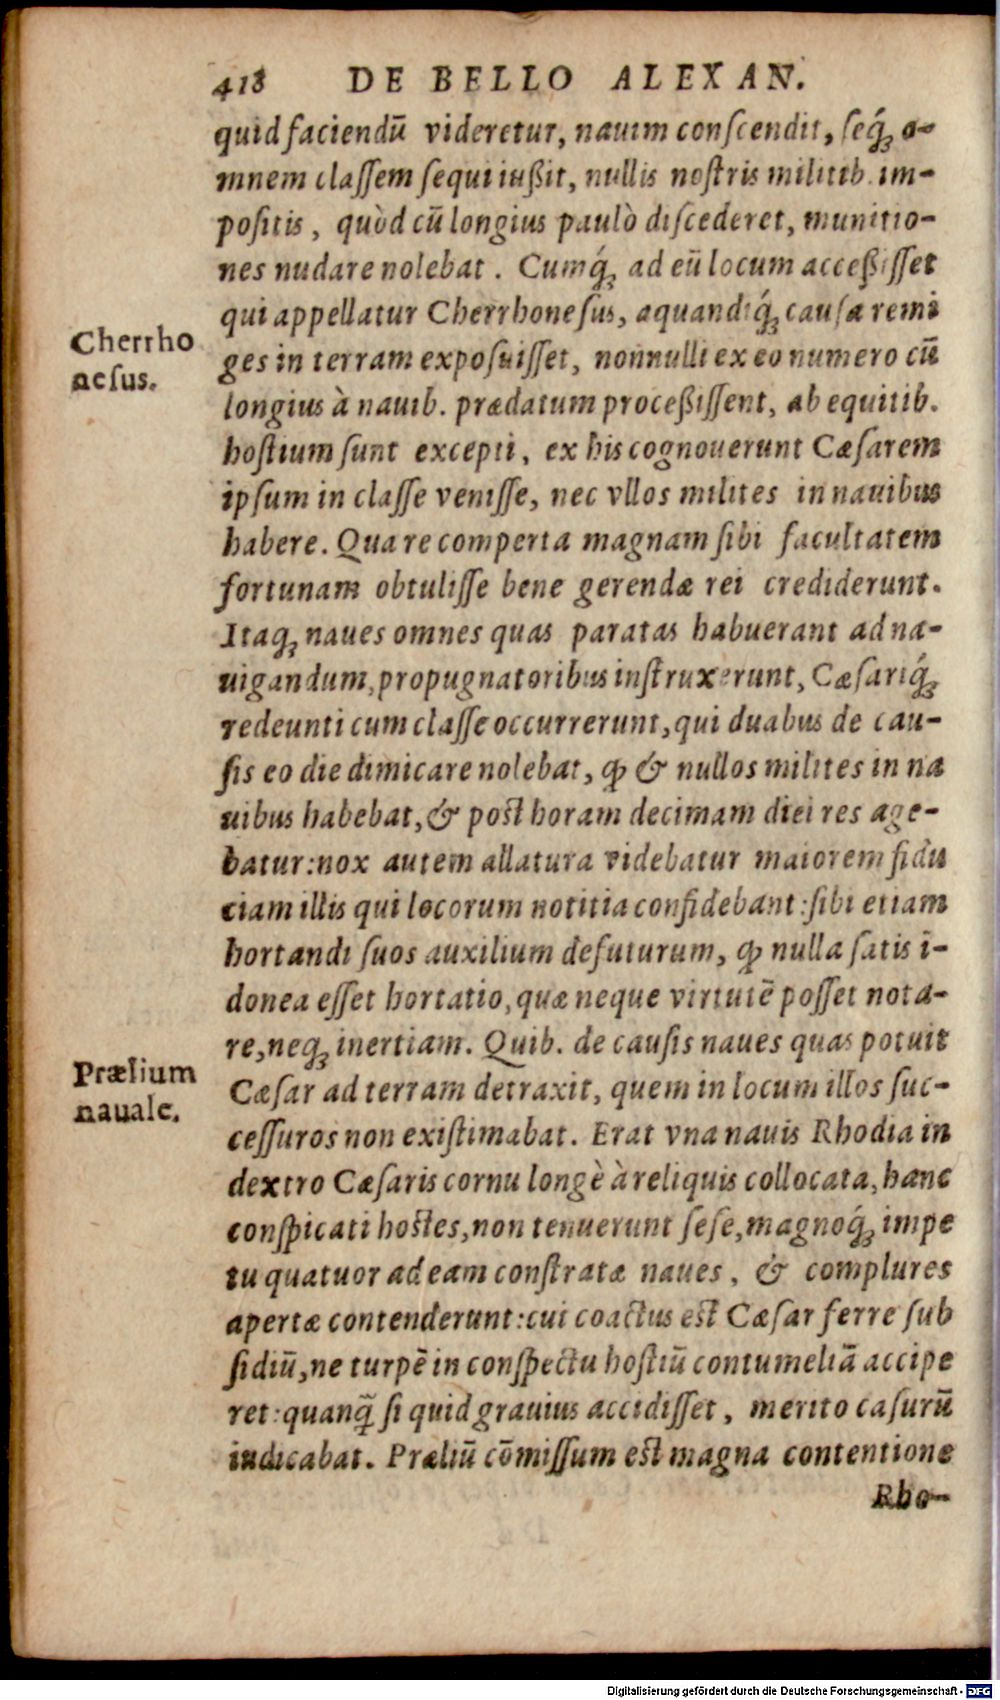 418 DE BELLO ALEXAN.
quid faciendū videretur, nauim conscendit, seq́ꝫ o-
mnem classem sequi iußit, nullis nostris militib. im-
positis, quòd cū longius paulò discederet, munitio-
nes nudare nolebat. Cumq́ꝫ ad eū locum acceßisset
qui appellatur Cherrhonesus, aquandiq́ꝫ causa remi
ges in terram exposuisset, nonnulli ex eo numero cū
longius à nauib. prædatum proceßissent, ab equitib.
hostium sunt excepti, ex his cognouerunt Cæsarem
ipsum in classe venisse, nec vllos milites in nauibus
habere. Qua re comperta magnam sibi facultatem
fortunam obtulisse bene gerendæ rei crediderunt.
Itaqꝫ naues omnes quas paratas habuerant ad na-
uigandum, propugnatoribus instruxerunt, Cæsariq́ꝫ
redeunti cum classe occurrerunt, qui duabus de cau-
sis eo die dimicare nolebat, ꝙ & nullos milites in na
uibus habebat, & post horam decimam diei res age-
batur: nox autem allatura videbatur maiorem fidu
ciam illis qui locorum notitia confidebant: sibi etiam
hortandi suos auxilium defuturum, ꝙ nulla satis i-
donea esset hortatio, quæ neque virtutē posset nota-
re, neqꝫ inertiam. Quib. de causis naues quas potuit
Cæsar ad terram detraxit, quem in locum illos suc-
cessuros non existimabat. Erat vna nauis Rhodia in
dextro Cæsaris cornu longè à reliquis collocata, hanc
conspicati hostes, non tenuerunt sese, magnoq́ꝫ impe
tu quatuor ad eam constratæ naues, & complures
apertæ contenderunt: cui coactus est Cæsar ferre sub
sidiū, ne turpē in conspectu hostiū contumeliā accipe
ret: quanq̄ si quid grauius accidisset, merito casurū
iudicabat. Præliū cōmissum est magna contentione
Rho-
Cherrho
nesus.
Prælium
nauale.
Digitalisierung gefördert durch die Deutsche Forschungsgemeinschaft - DFG